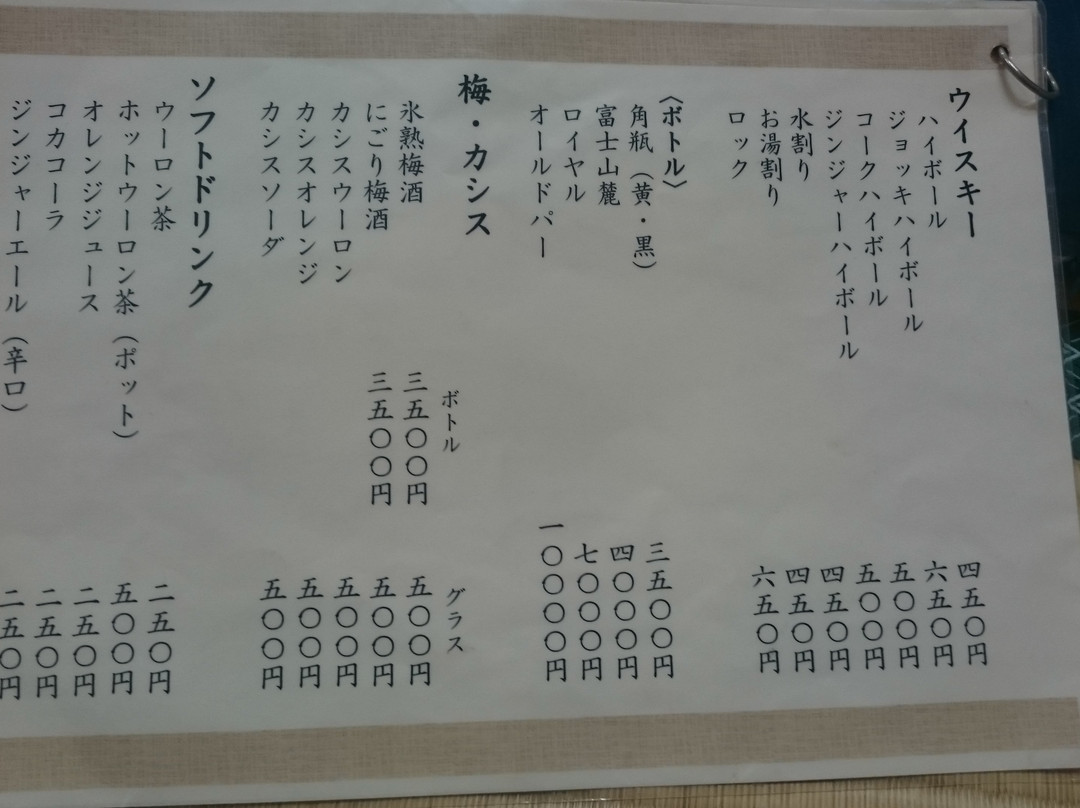 ウイスキー
ハイボール 四五〇円
ジョッキハイボール 六五〇円
コークハイボール 五〇〇円
ジンジャーハイボール 五〇〇円
水割り 四五〇円
お湯割り 四五〇円
ロック 六五〇円
〈ボトル〉
角瓶（黄・黒） 三五〇〇円
富士山麓 四〇〇〇円
ロイヤル 七〇〇〇円
オールドパー 一〇〇〇〇円
梅・カシス
ボトル グラス
氷熟梅酒 三五〇〇円 五〇〇円
にごり梅酒 三五〇〇円 五〇〇円
カシスウーロン 五〇〇円
カシスオレンジ 五〇〇円
カシスソーダ 五〇〇円
ソフトドリンク
ウーロン茶 二五〇円
ホットウーロン茶（ポット） 五〇〇円
オレンジジュース 二五〇円
コカコーラ 二五〇円
ジンジャーエール（辛口） 二五〇円